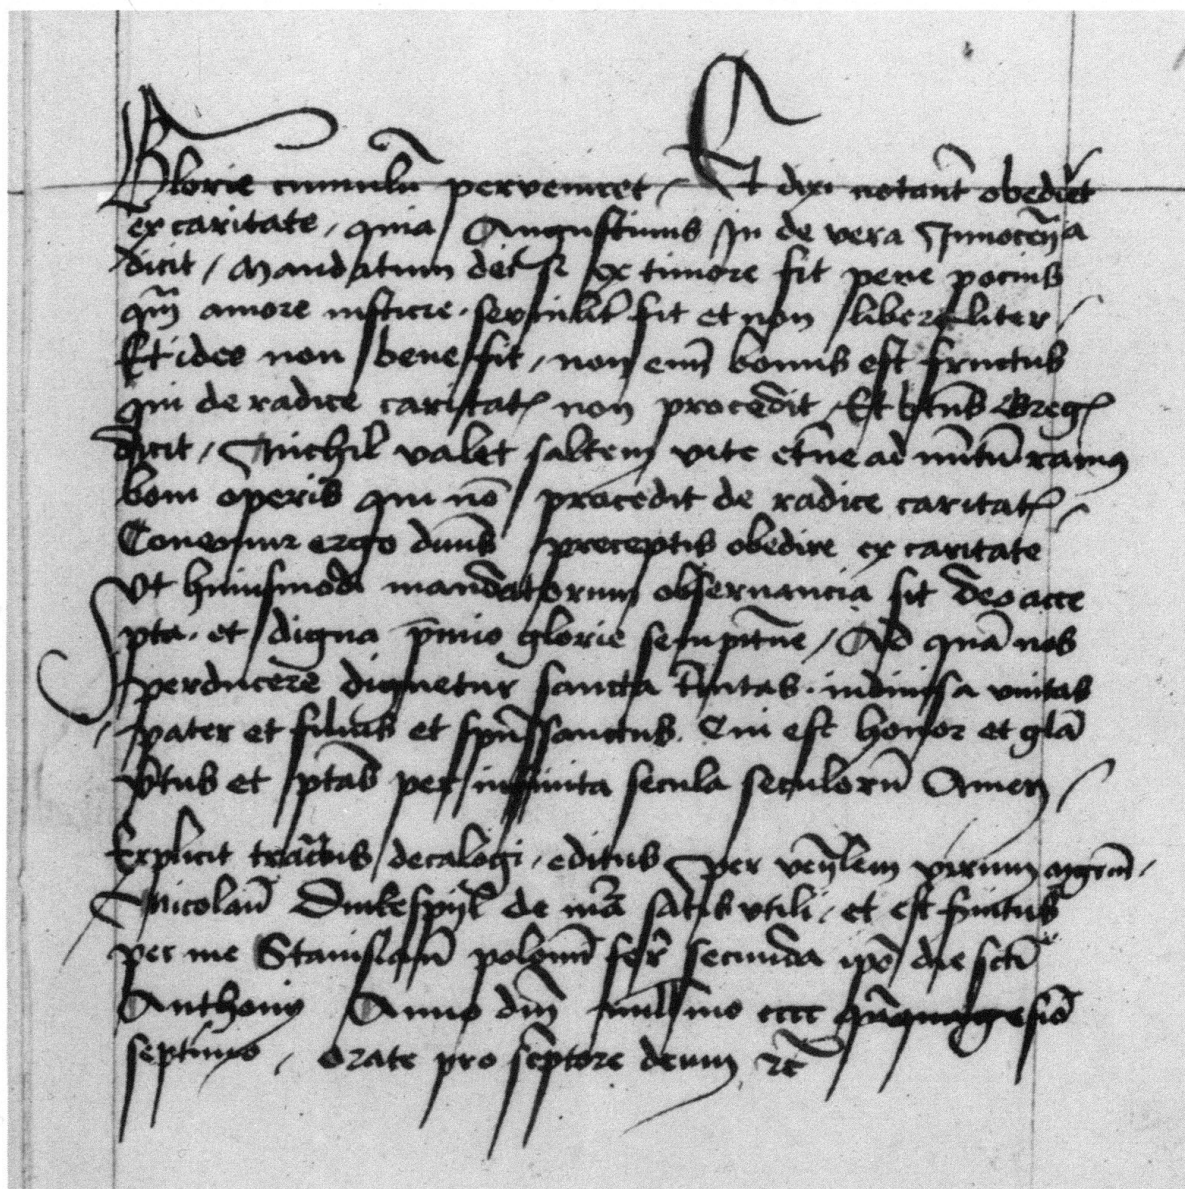 Glorie cumulū perveniret / Et dixi notant̄ obediret
ex caritate / quia Augustinus In de vera Innocēcia
dicit / Mandatum dei si ex timore fit pene pocius
qm̄ amore iusticie . servilit̄ fit et non liberaliter /
Et ideo non bene fit / non enī bonus est fructus
qui de radice caritat̄ non procedit / Et btūs Greḡ
dicit / Nichil valet saltem vite etn̄e ad ramus
boni operis qui nō procedit de radice caritat̄ /
ergo preceptis obedire ex caritate
Vt huiusmodi mandatorum observancia sit deo acce
pta . et digna p̄mio glorie sempitn̄e / Ad quā nos
perducere dignetur sancta trīnitas . indivisa vnitas
pater et filius et spūs sanctus . Cui est honor et glā
v̄tus et ptās per infinita secula seculorū Amen /
Explicit tractus decalogi . editus per ven̄lem virum mgrm̄ .
Nicolaū Dinkespyl de mā satis vtili . et est finitus
per me Stanislaū polonū fer̄ secunda ipō die scti
Anthony Anno dn̄i millimo cccc qūquagesiō
septimo . Orate pro sc̄ptore deum rc̄